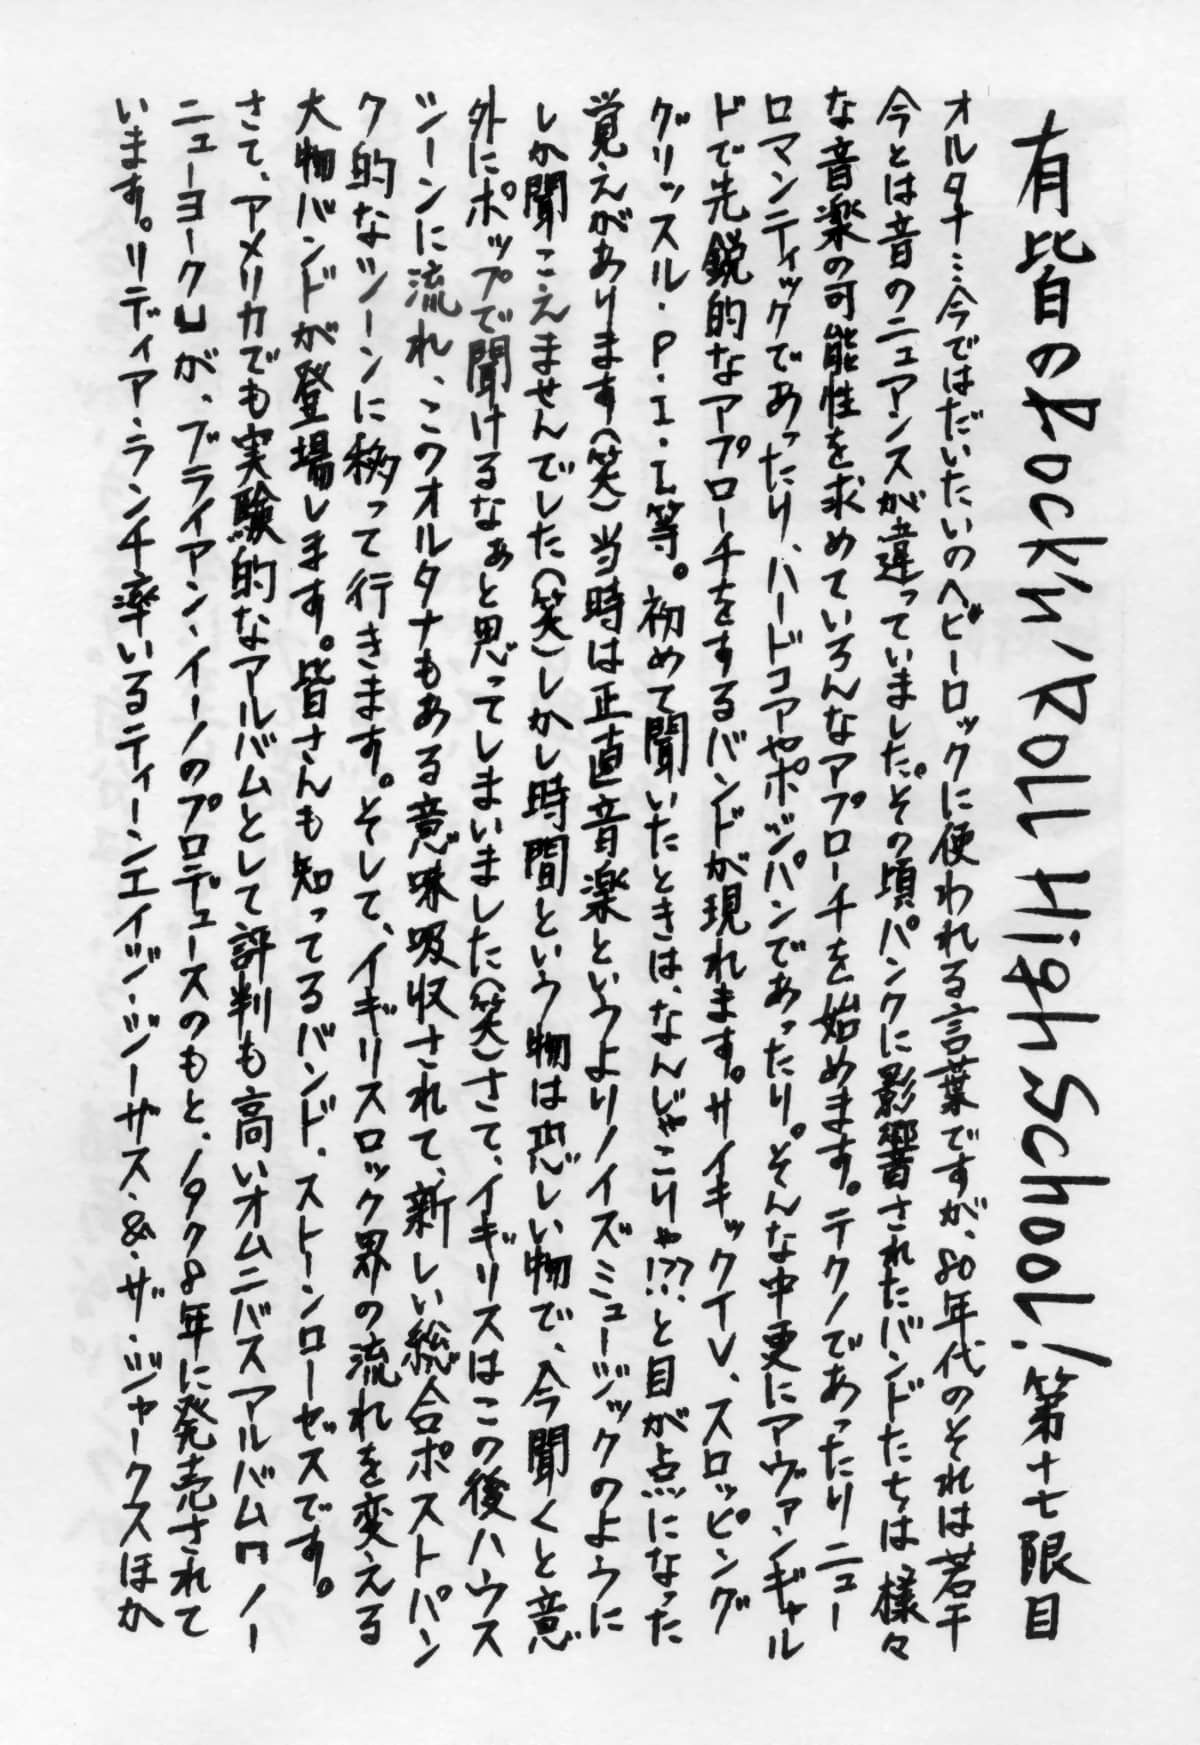 有皆のRock'n'Roll High School! 第十七限目
オルタナ…今ではだいたいのヘビーロックに使われる言葉ですが、80年代のそれは若干
今とは音のニュアンスが違っていました。その頃パンクに影響されたバンドたちは、様々
な音楽の可能性を求めていろんなアプローチを始めます。テクノであったりニュー
ロマンティックであったり、ハードコアやポジパンであったり。そんな中更にアヴァンギャル
ドで先鋭的なアプローチをするバンドが現れます。サイキックTV、スロッピング
グリッスル・P・I・L等。初めて聞いたときは、なんじゃこりゃ!??と目が点になった
覚えがあります(笑)当時は正直音楽というよりノイズミュージックのように
しか聞こえませんでした(笑)しかし時間という物は恐しい物で、今聞くと意
外にポップで聞けるなぁと思ってしまいました(笑)さて、イギリスはこの後ハウス
シーンに流れ、このオルタナもある意味吸収されて、新しい総合ポストパン
ク的なシーンに移って行きます。そして、イギリスロック界の流れを変える
大物バンドが登場します。皆さんも知ってるバンド、ストーンローゼスです。
さて、アメリカでも実験的なアルバムとして評判も高いオムニバスアルバム『ノー
ニューヨーク』が、ブライアン・イーノのプロデュースのもと、1978年に発売されて
います。リディア・ランチ率いるティーンエイジ・ジーザス・&・ザ・ジャークスほか